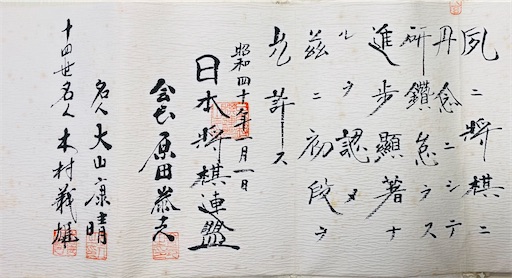 夙ニ将棋ニ
丹念ニシテ
研鑽怠ラス
進歩顕著ナ
ルヲ認メ
茲ニ初段ヲ
允許ス
昭和四十年一月一日
日本将棋連盟
会長 原田泰夫
名人 大山康晴
十四世名人 木村義雄